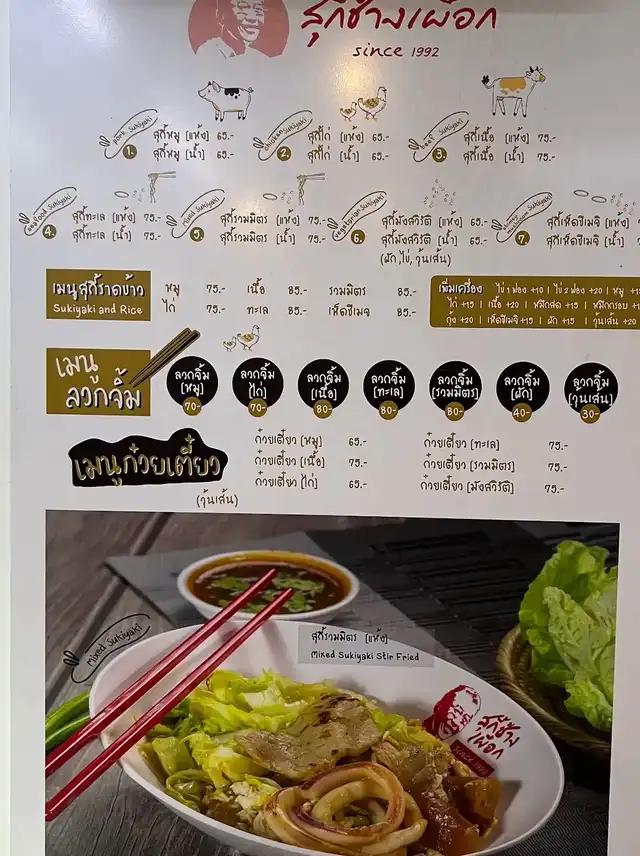 สุกี้ช้างเผือก
since 1992
Pork Sukiyaki
1. สุกี้หมู [แห้ง] 65.-
สุกี้หมู [น้ำ] 65.-
Chicken Sukiyaki
2. สุกี้ไก่ [แห้ง] 65.-
สุกี้ไก่ [น้ำ] 65.-
Beef Sukiyaki
3. สุกี้เนื้อ [แห้ง] 75.-
สุกี้เนื้อ [น้ำ] 75.-
Seafood Sukiyaki
4. สุกี้ทะเล [แห้ง] 75.-
สุกี้ทะเล [น้ำ] 75.-
Mixed Sukiyaki
5. สุกี้รวมมิตร [แห้ง] 75.-
สุกี้รวมมิตร [น้ำ] 75.-
Vegetarian Sukiyaki
6. สุกี้มังสวิรัติ [แห้ง] 65.-
สุกี้มังสวิรัติ [น้ำ] 65.-
(ผัก, ไข่, วุ้นเส้น)
7. สุกี้เห็ดชิเมจิ [แห้ง]
สุกี้เห็ดชิเมจิ [น้ำ]
เมนูสุกี้ราดข้าว
Sukiyaki and Rice
หมู 75.- เนื้อ 85.- รวมมิตร 85.-
ไก่ 75.- ทะเล 85.- เห็ดชิเมจิ 85.-
เพิ่มเครื่อง ไข่ 1 ฟอง +10 | ไข่ 2 ฟอง +20 | หมู
ไก่ +15 | เนื้อ +20 | หมึกสด +15 | หมึกกรอบ
กุ้ง +20 | เห็ดชิเมจิ +15 | ผัก +15 | วุ้นเส้น +20
เมนู
ลวกจิ้ม
ลวกจิ้ม [หมู] 70-
ลวกจิ้ม [ไก่] 70-
ลวกจิ้ม [เนื้อ] 80-
ลวกจิ้ม [ทะเล] 80-
ลวกจิ้ม [รวมมิตร] 80-
ลวกจิ้ม [ผัก] 40-
ลวกจิ้ม [วุ้นเส้น] 30-
เมนูก๋วยเตี๋ยว
(วุ้นเส้น)
ก๋วยเตี๋ยว [หมู] 65.-
ก๋วยเตี๋ยว [เนื้อ] 75.-
ก๋วยเตี๋ยว [ไก่] 65.-
ก๋วยเตี๋ยว [ทะเล] 75.-
ก๋วยเตี๋ยว [รวมมิตร] 75.-
ก๋วยเตี๋ยว [มังสวิรัติ] 75.-
Mixed Sukiyaki
สุกี้รวมมิตร [แห้ง]
Mixed Sukiyaki Stir Fried
สุกี้ช้าง
เผือก
since 1992